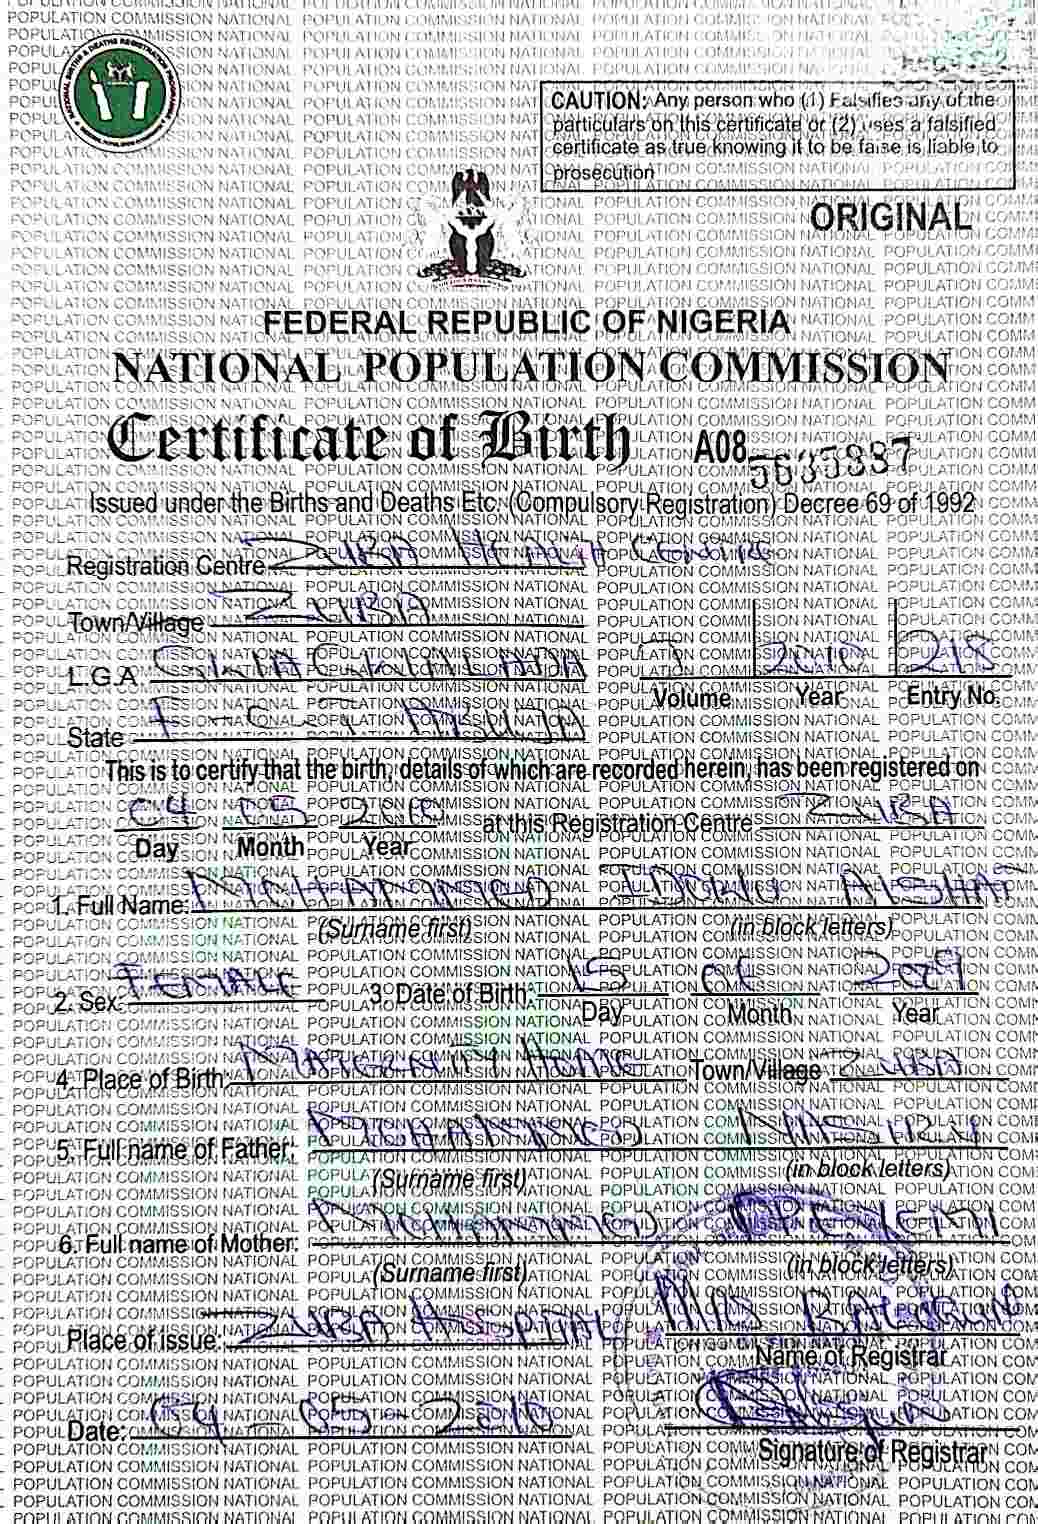 CAUTION: Any person who (1) Falsifies any of the
particulars on this certificate or (2) uses a falsified
certificate as true knowing it to be false is liable to
prosecution
ORIGINAL
FEDERAL REPUBLIC OF NIGERIA
NATIONAL POPULATION COMMISSION
Certificate of Birth A08
Issued under the Births and Deaths Etc. (Compulsory Registration) Decree 69 of 1992
Registration Centre ZUBA HEALTH CENTRE
Town/Village ZUBA
L.G.A GWAGWALADA 2010 218
Volume Year Entry No.
State F.C.T ABUJA
This is to certify that the birth, details of which are recorded herein, has been registered on
04 05 2010 at this Registration Centre ZUBA
Day Month Year
1. Full Name: MOHAMMED AISHAT
(Surname first) (in block letters)
2. Sex: FEMALE 3. Date of Birth: 15 2009
Day Month Year
4. Place of Birth: MATERNITY HOME Town/Village ZUBA
5. Full name of Father: MOHAMMED
(Surname first) (in block letters)
6. Full name of Mother: MUHAMMED
(Surname first) (in block letters)
Place of issue: ZUBA HOSPITAL
Name of Registrar
Date: 04 - 05 - 2010
Signature of Registrar